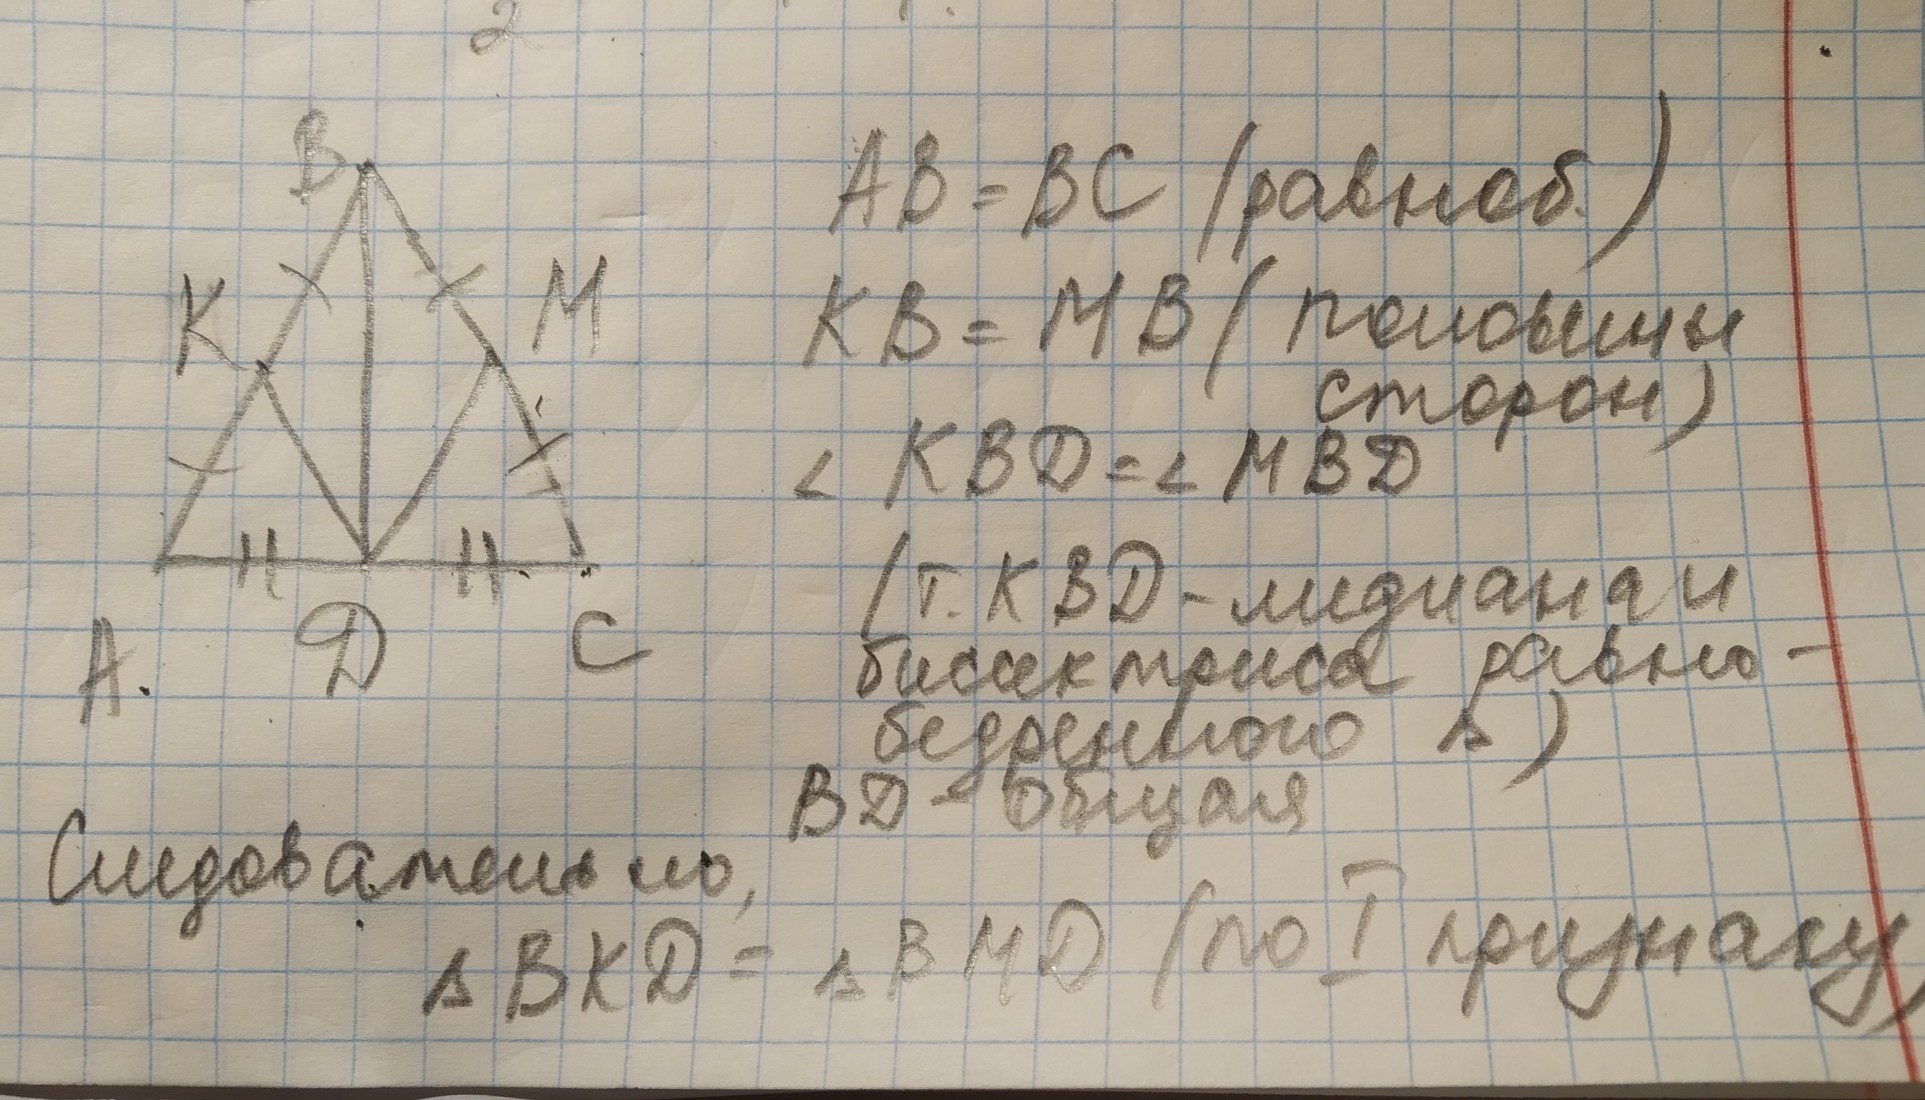 2
B
K
M
A.
D
C
AB = BC (равноб.)
KB = MB (половины
сторон)
∠ KBD = ∠ MBD
(т.к BD - медиана и
биссектриса равно-
бедренного Δ)
BD - общая
Следовательно,
Δ BKD = Δ BMD (по I признаку)